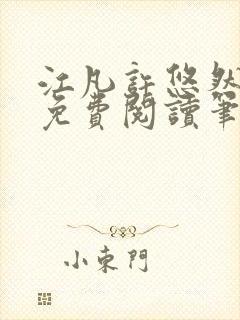 江凡許悠然
免費閱讀筆
小東門